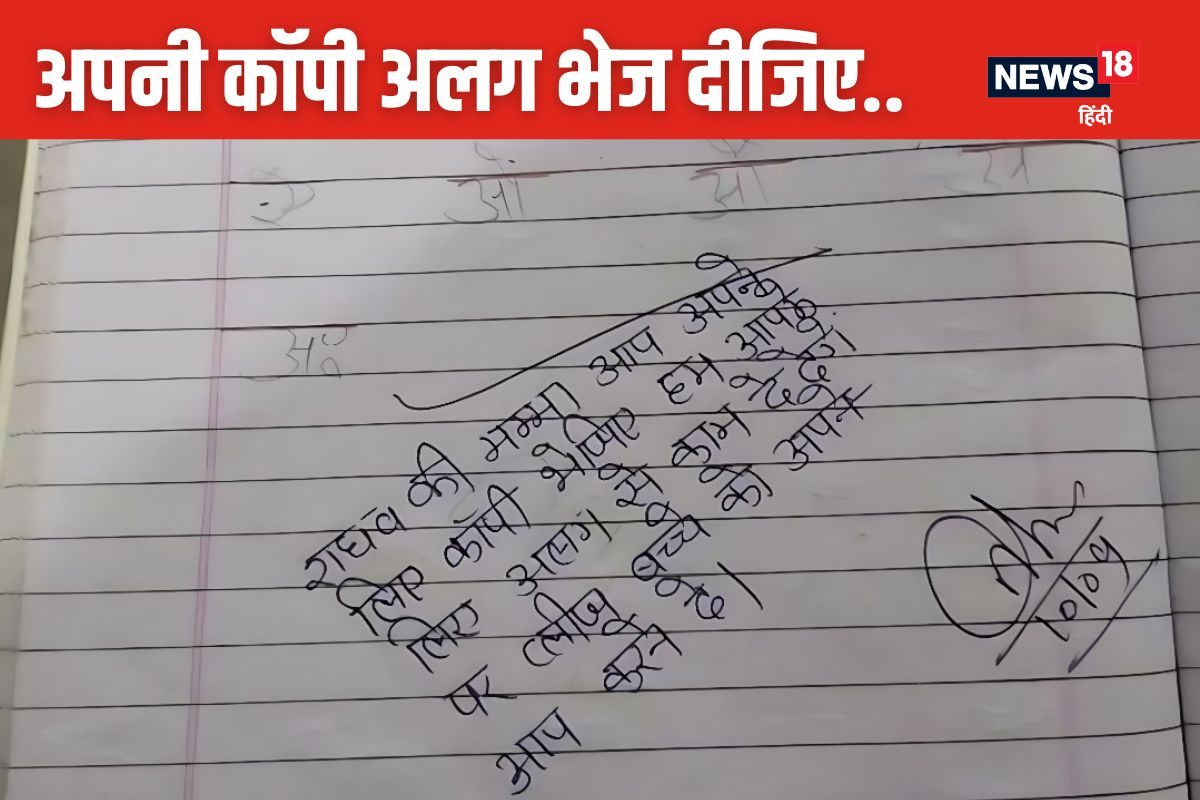 अपनी कॉपी अलग भेज दीजिए..
NEWS 18
हिंदी
ओ औ
अः
राघव की मम्मा आप अपने
लिए कॉपी भेजिए हम आपके
लिए अलग से काम दे देंगे।
पर प्लीज बच्चे को अपने
आप करने दे।
10/09